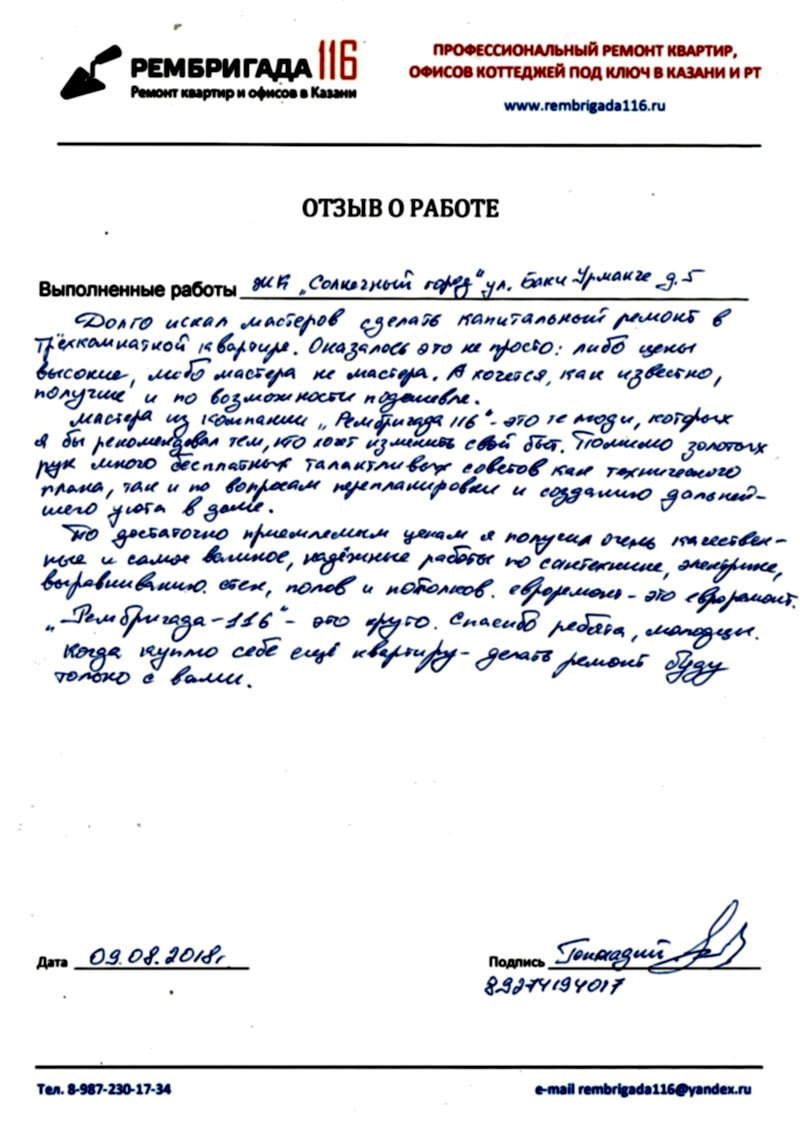 РЕМБРИГАДА 116
Ремонт квартир и офисов в Казани
ПРОФЕССИОНАЛЬНЫЙ РЕМОНТ КВАРТИР,
ОФИСОВ КОТТЕДЖЕЙ ПОД КЛЮЧ В КАЗАНИ И РТ
www.rembrigada116.ru
ОТЗЫВ О РАБОТЕ
Выполненные работы ЖК „Солнечный город" ул. Баки Урманче д.5
Долго искал мастеров сделать капитальный ремонт в
трёхкомнатной квартире. Оказалось это не просто: либо цены
высокие, либо мастера не мастера. А хочется, как известно,
получше и по возможности подешевле.
Мастера из компании „Рембригада 116" - это те люди, которых
я бы рекомендовал тем, кто хочет изменить свой быт. Помимо золотых
рук много бесплатных талантливых советов как технического
плана, так и по вопросам перепланировки и созданию дальней-
шего уюта в доме.
По достаточно приемлемым ценам я получил очень качествен-
ные и самое главное, надёжные работы по сантехнике, электрике,
выравниванию стен, полов и потолков. евроремонт - это евроремонт.
„Рембригада-116" - это круто. Спасибо ребята, молодцы.
Когда куплю себе ещё квартиру - делать ремонт буду
только с вами.
Дата 09.08.2018г
Подпись Геннадий
89274194017
Тел. 8-987-230-17-34
e-mail rembrigada116@yandex.ru